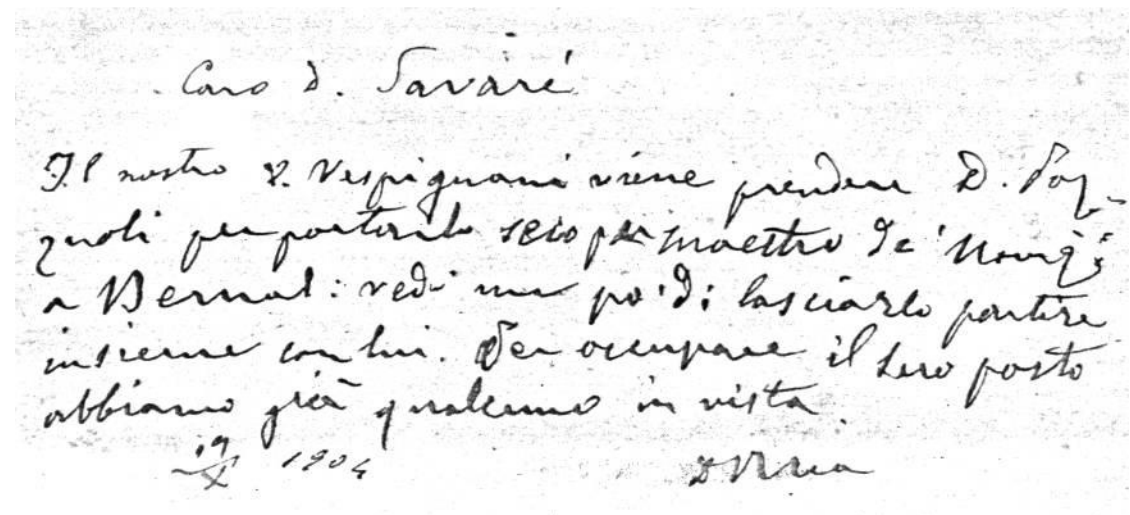 Caro D. Savaré
Il nostro D. Vespignani viene prendere D. Pag-
gnoli per portarlo seco per maestro de'
a Bernal: vedi un po' di lasciarlo partire
insieme con lui. Per occupare il suo posto
abbiamo già qualcuno in vista
19/X 1904 D Rua